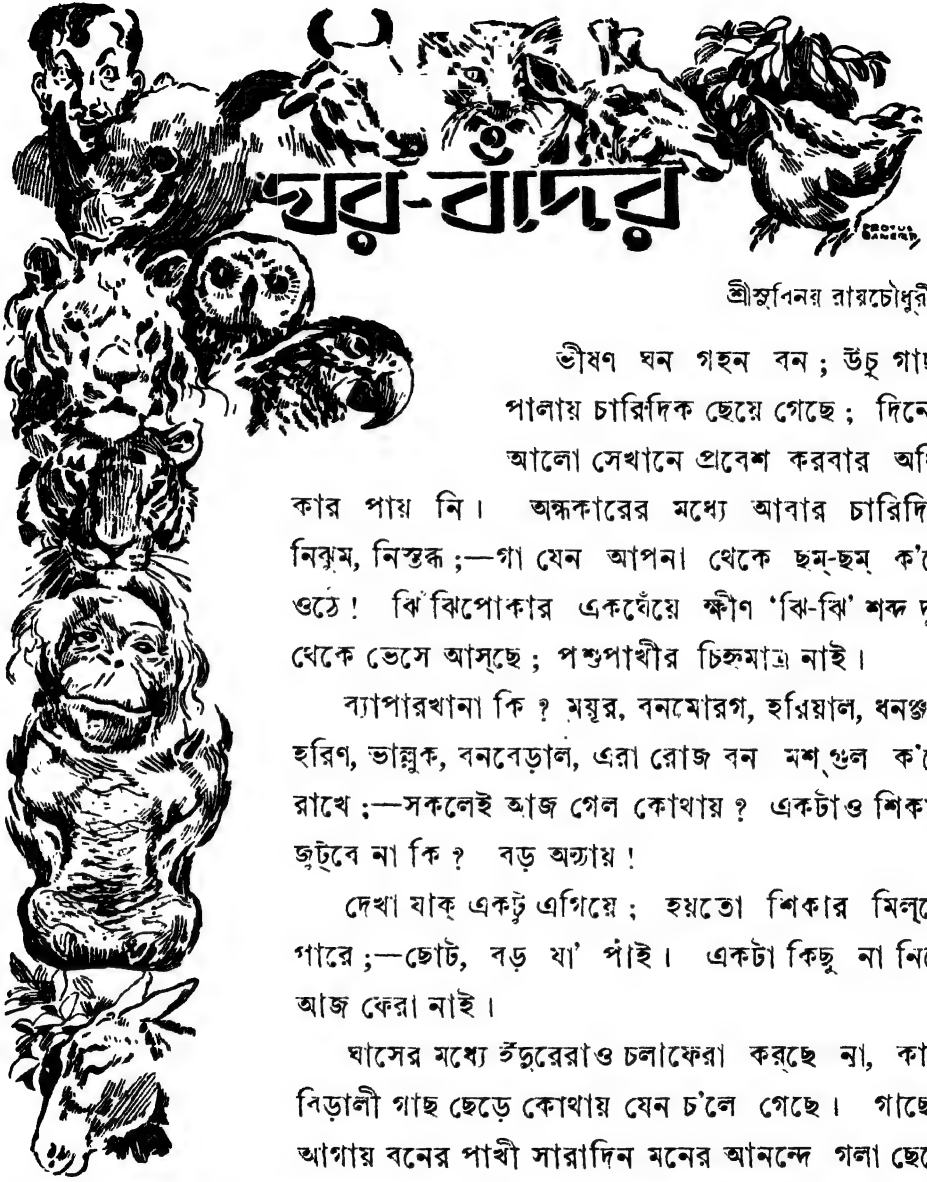 ঘর-বাঁদর
PROTUL BANERJI
শ্রীসুবিনয় রায়চৌধুরী
ভীষণ ঘন গহন বন ; উঁচু গাছ
পালায় চারিদিক ছেয়ে গেছে ; দিনে
আলো সেখানে প্রবেশ করবার অধি
কার পায় নি। অন্ধকারের মধ্যে আবার চারিদি
নিঝুম, নিস্তব্ধ ;—গা যেন আপনা থেকে ছম্-ছম্ ক'রে
ওঠে ! ঝিঁঝিপোকার একঘেঁয়ে ক্ষীণ ‘ঝি-ঝি’ শব্দ দূ
থেকে ভেসে আস্‌ছে ; পশুপাখীর চিহ্নমাত্র নাই।
ব্যাপারখানা কি ? ময়ূর, বনমোরগ, হরিয়াল, ধনঞ্জ
হরিণ, ভাল্লুক, বনবেড়াল, এরা রোজ বন মশ্‌গুল ক'রে
রাখে ;—সকলেই আজ গেল কোথায় ? একটাও শিকা
জুট্‌বে না কি ? বড় অন্যায় !
দেখা যাক্ একটু এগিয়ে ; হয়তো শিকার মিল্‌তে
পারে ;—ছোট, বড় যা' পাই। একটা কিছু না নিয়ে
আজ ফেরা নাই।
ঘাসের মধ্যে ইঁদুরেরাও চলাফেরা কর্‌ছে না, কা
বিড়ালী গাছ ছেড়ে কোথায় যেন চ'লে গেছে। গাছে
আগায় বনের পাখী সারাদিন মনের আনন্দে গলা ছেড়ে